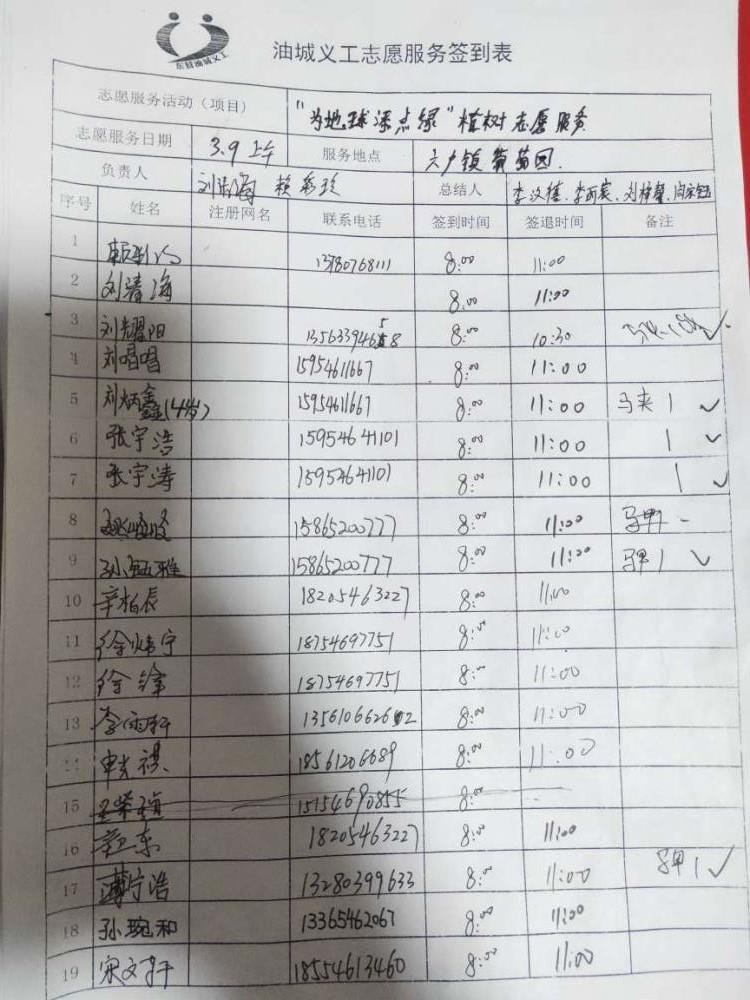 东营油城义工
油城义工志愿服务签到表
志愿服务活动（项目） "为地球添点绿"植树志愿服务
志愿服务日期 3.9 上午 服务地点 六户镇葡萄园.
负责人 刘清海 赖 总结人 李汶穗、李雨宸、刘梓馨、闫
序号 姓名 注册网名 联系电话 签到时间 签退时间 备注
1 13780768111 8:00 11:00
2 刘清海 8:00 11:00
3 刘耀阳 8:00 10:30
4 刘唱唱 15954611667 8:00 11:00
5 刘炳鑫(14岁) 15954611667 8:00 11:00 马夹 1 ✓
6 张宇浩 15954641101 8:00 11:00 1 ✓
7 张宇涛 15954641101 8:00 11:00 1 ✓
8 15865200777 8:00 11:00 马甲
9 孙钰雅 15865200777 8:00 11:00 马甲 1 ✓
10 辛柏辰 18205463227 8:00 11:00
11 徐炜宁 18754697751 8:00 11:00
12 徐锋 18754697751 8:00 11:00
13 李雨轩 8:00 11:00
14 18561206689 8:00 11:00
15 15154690855 8:00
16 18205463227 8:00 11:00
17 薄宁浩 13280399633 8:00 11:00 马甲 1 ✓
18 孙琬和 13365462067 8:00 11:00
19 宋文轩 18554613460 8:00 11:00